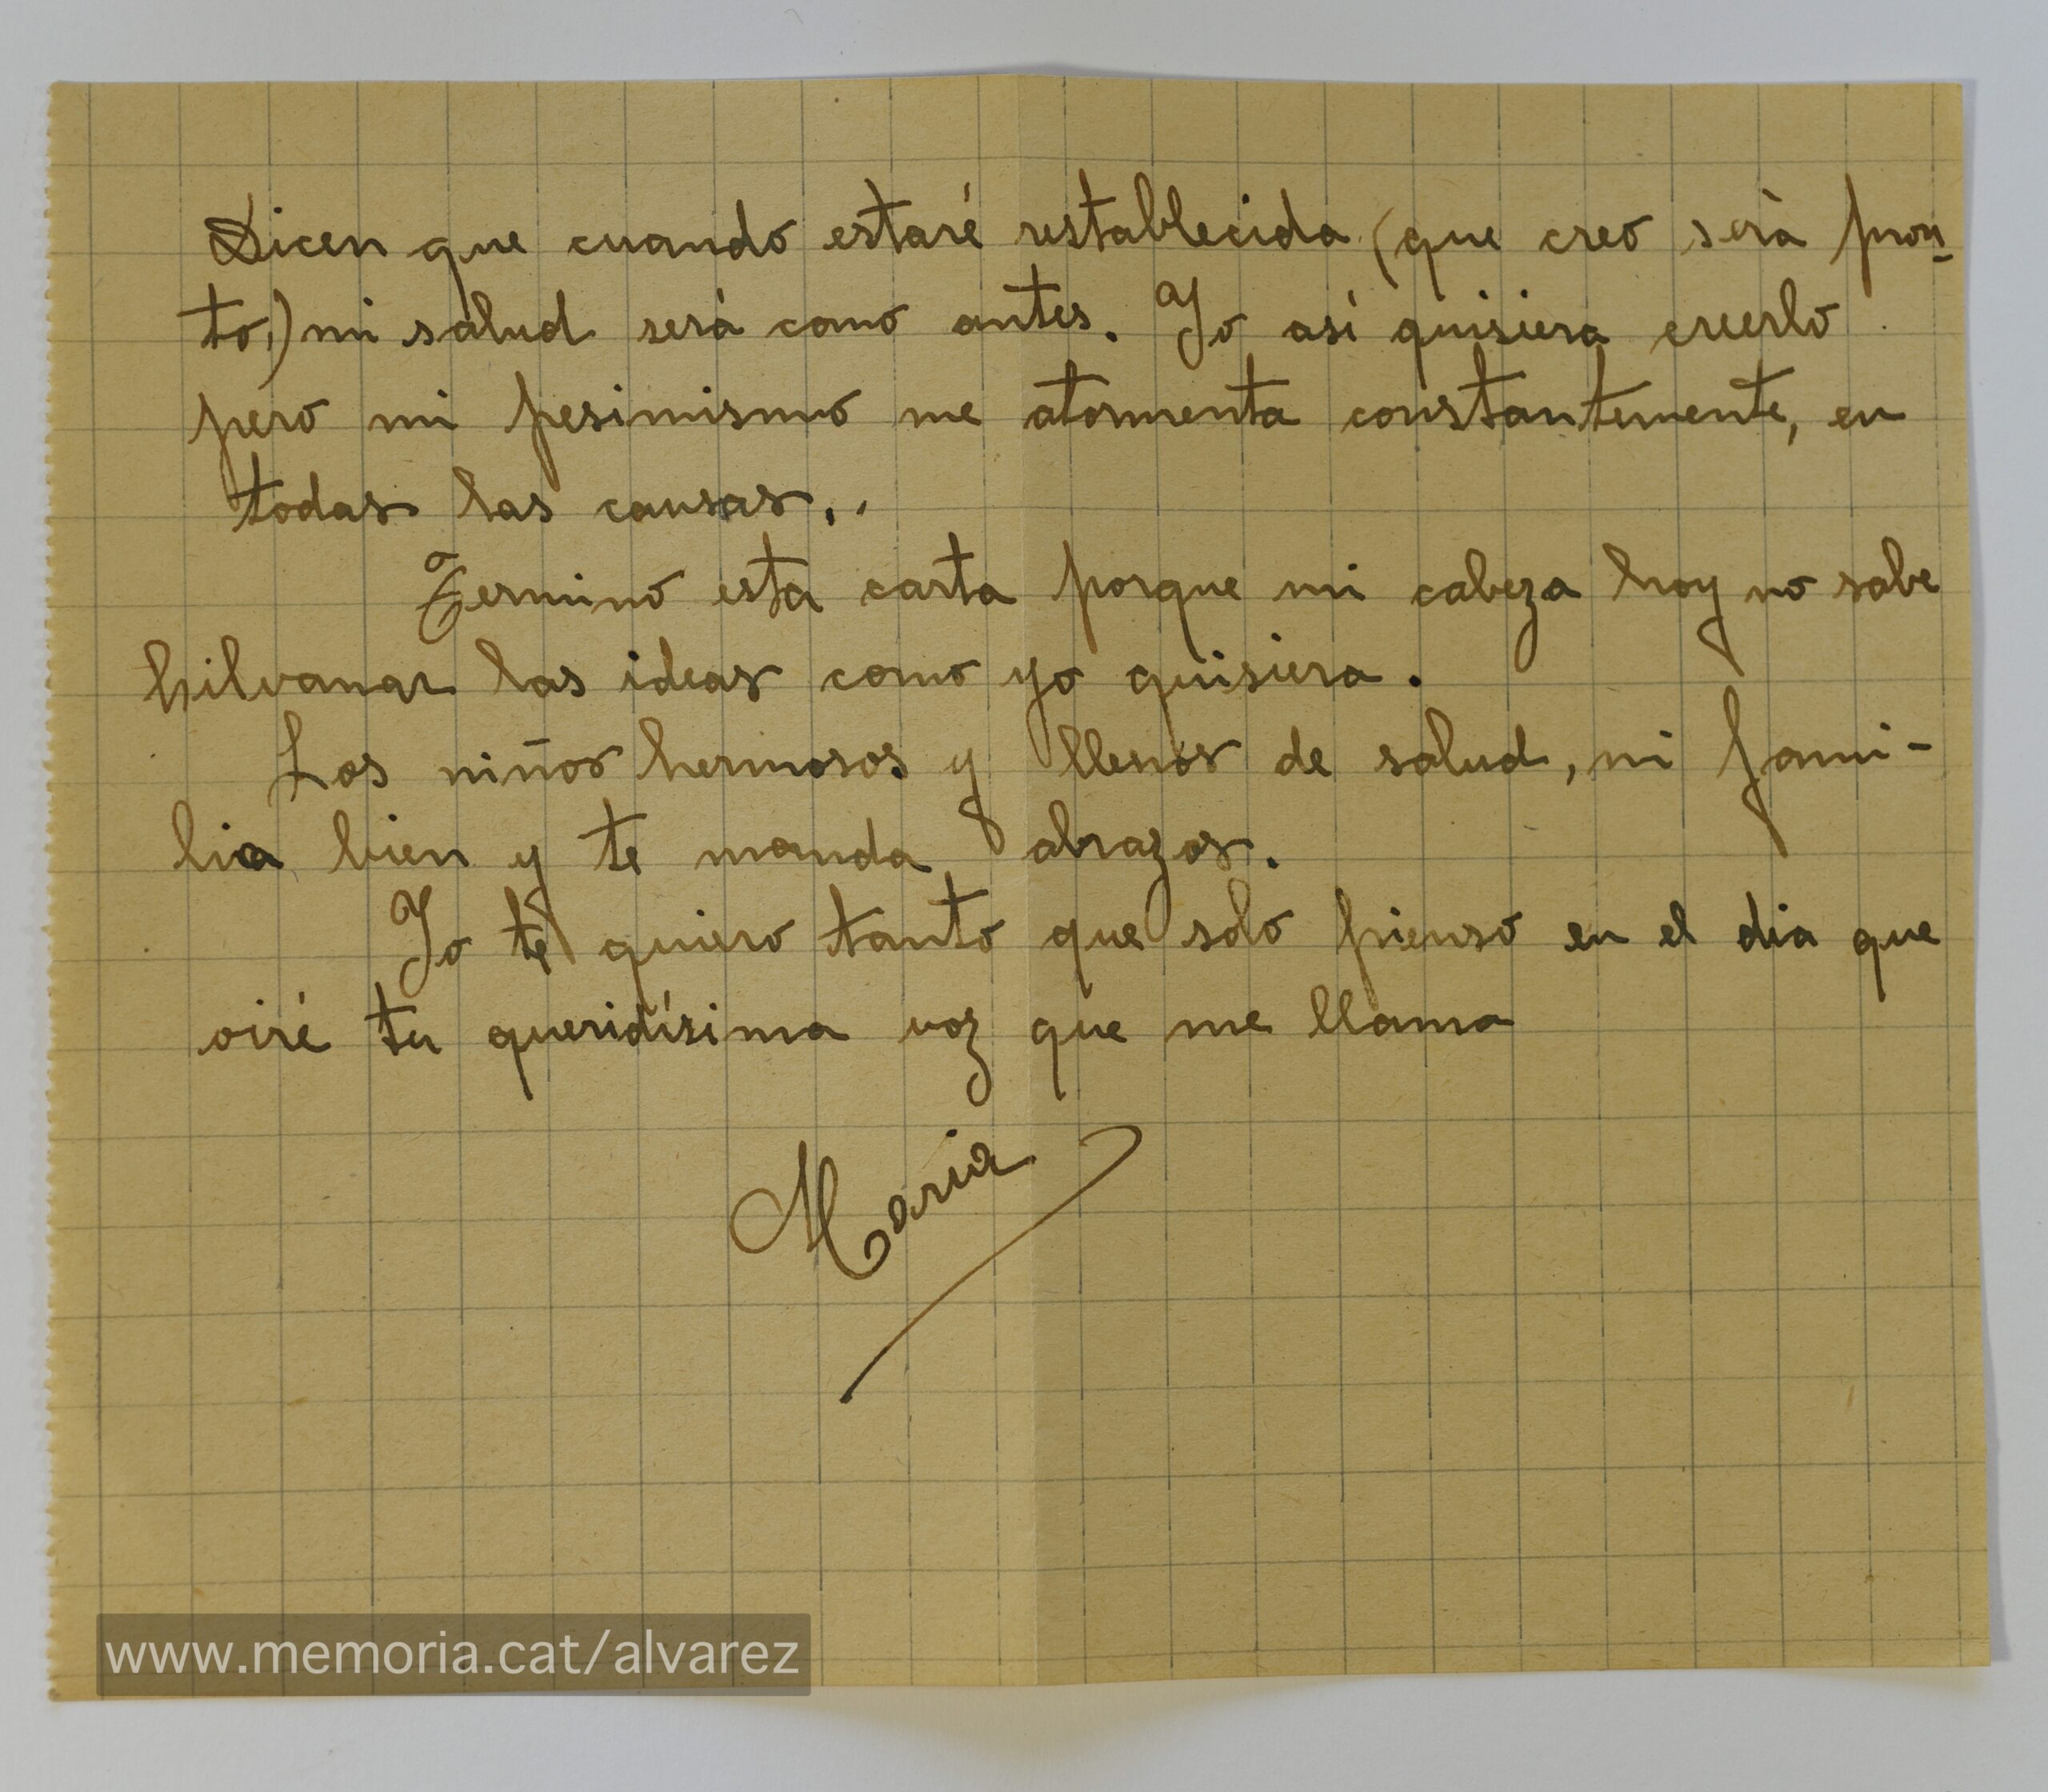 Dicen que cuando estaré restablecida (que creo serà pron-
to,) mi salud será como antes. Yo así quisiera creerlo
pero mi pesimismo me atormenta constantemente, en
todas las causas..
Termino esta carta porque mi cabeza hoy no sabe
hilvanar las ideas como yo quisiera.
Los niños hermosos y llenos de salud, mi fami-
lia bien y te manda abrazos.
Yo te quiero tanto que solo pienso en el dia que
oiré tu queridísima voz que me llama
Maria
www.memoria.cat/alvarez